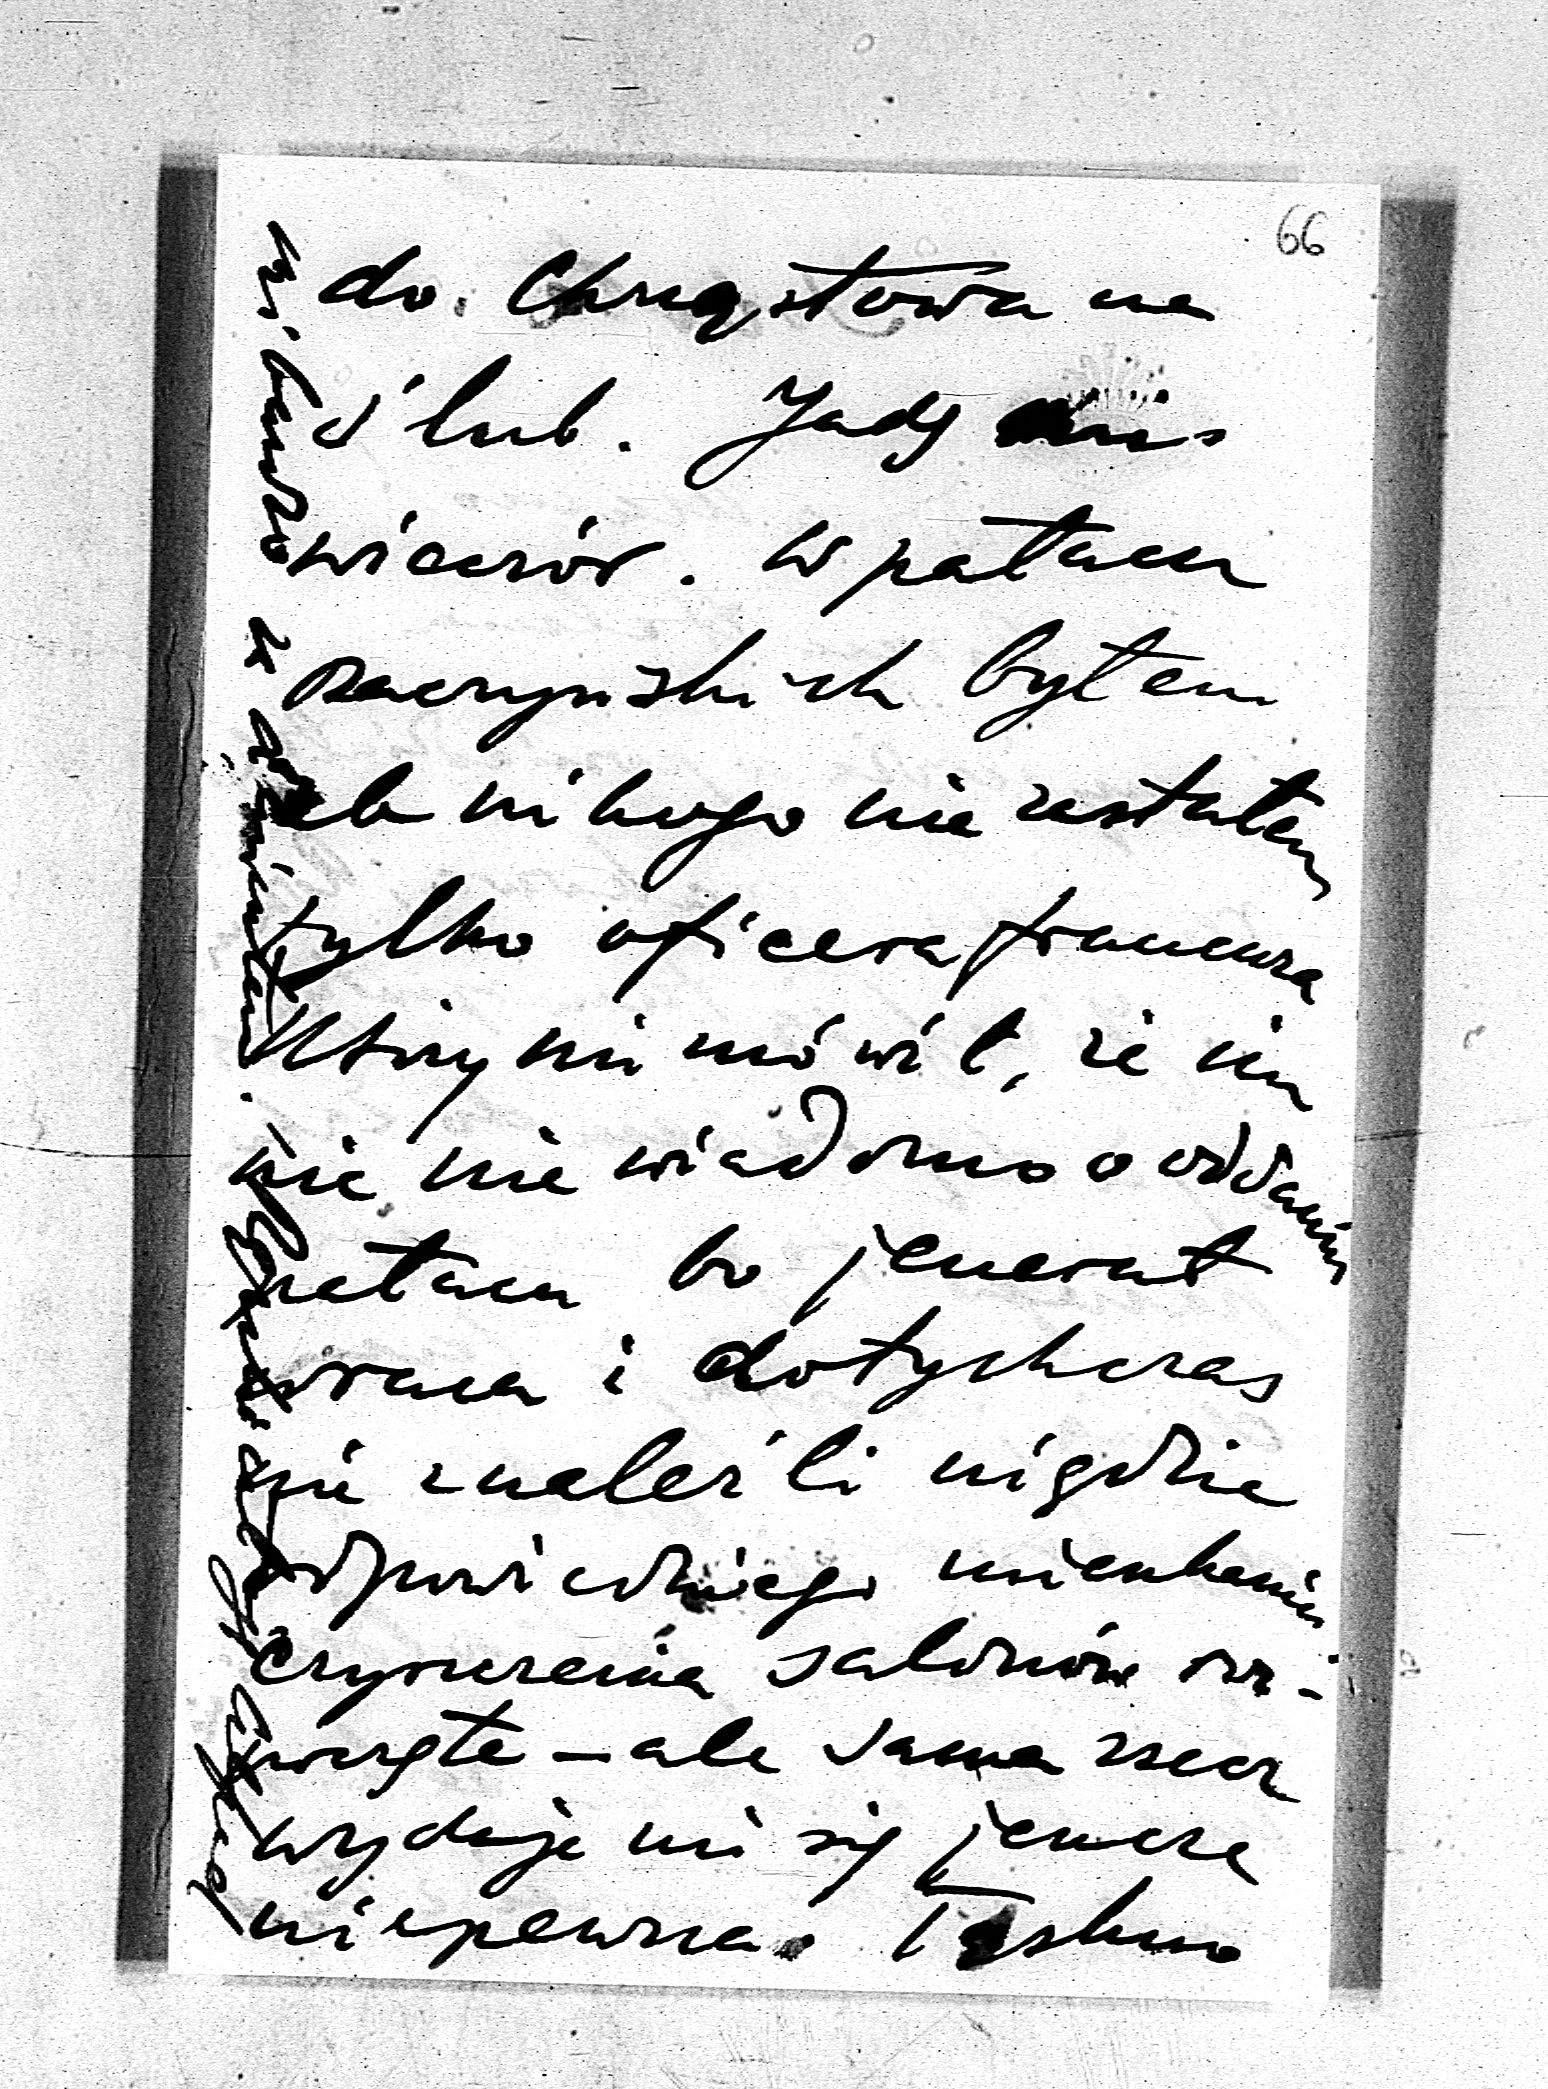 66
do Chrząstowa na
ślub. Jadę dziś
wieczór. W pałacu
Raczyńskich byłem
ale nikogo nie zastałem
tylko oficera francuza
który mi mówił, że im
nic nie wiadomo o oddaniu
pałacu bo jenerał
wraca i dotychczas
nie znaleźli nigdzie
odpowiedniego mieszkania
Czyszczenia salonów roz-
poczęte – ale sama rzecz
wydaje mi się jeszcze
niepewna. Tęskno
mi bardzo